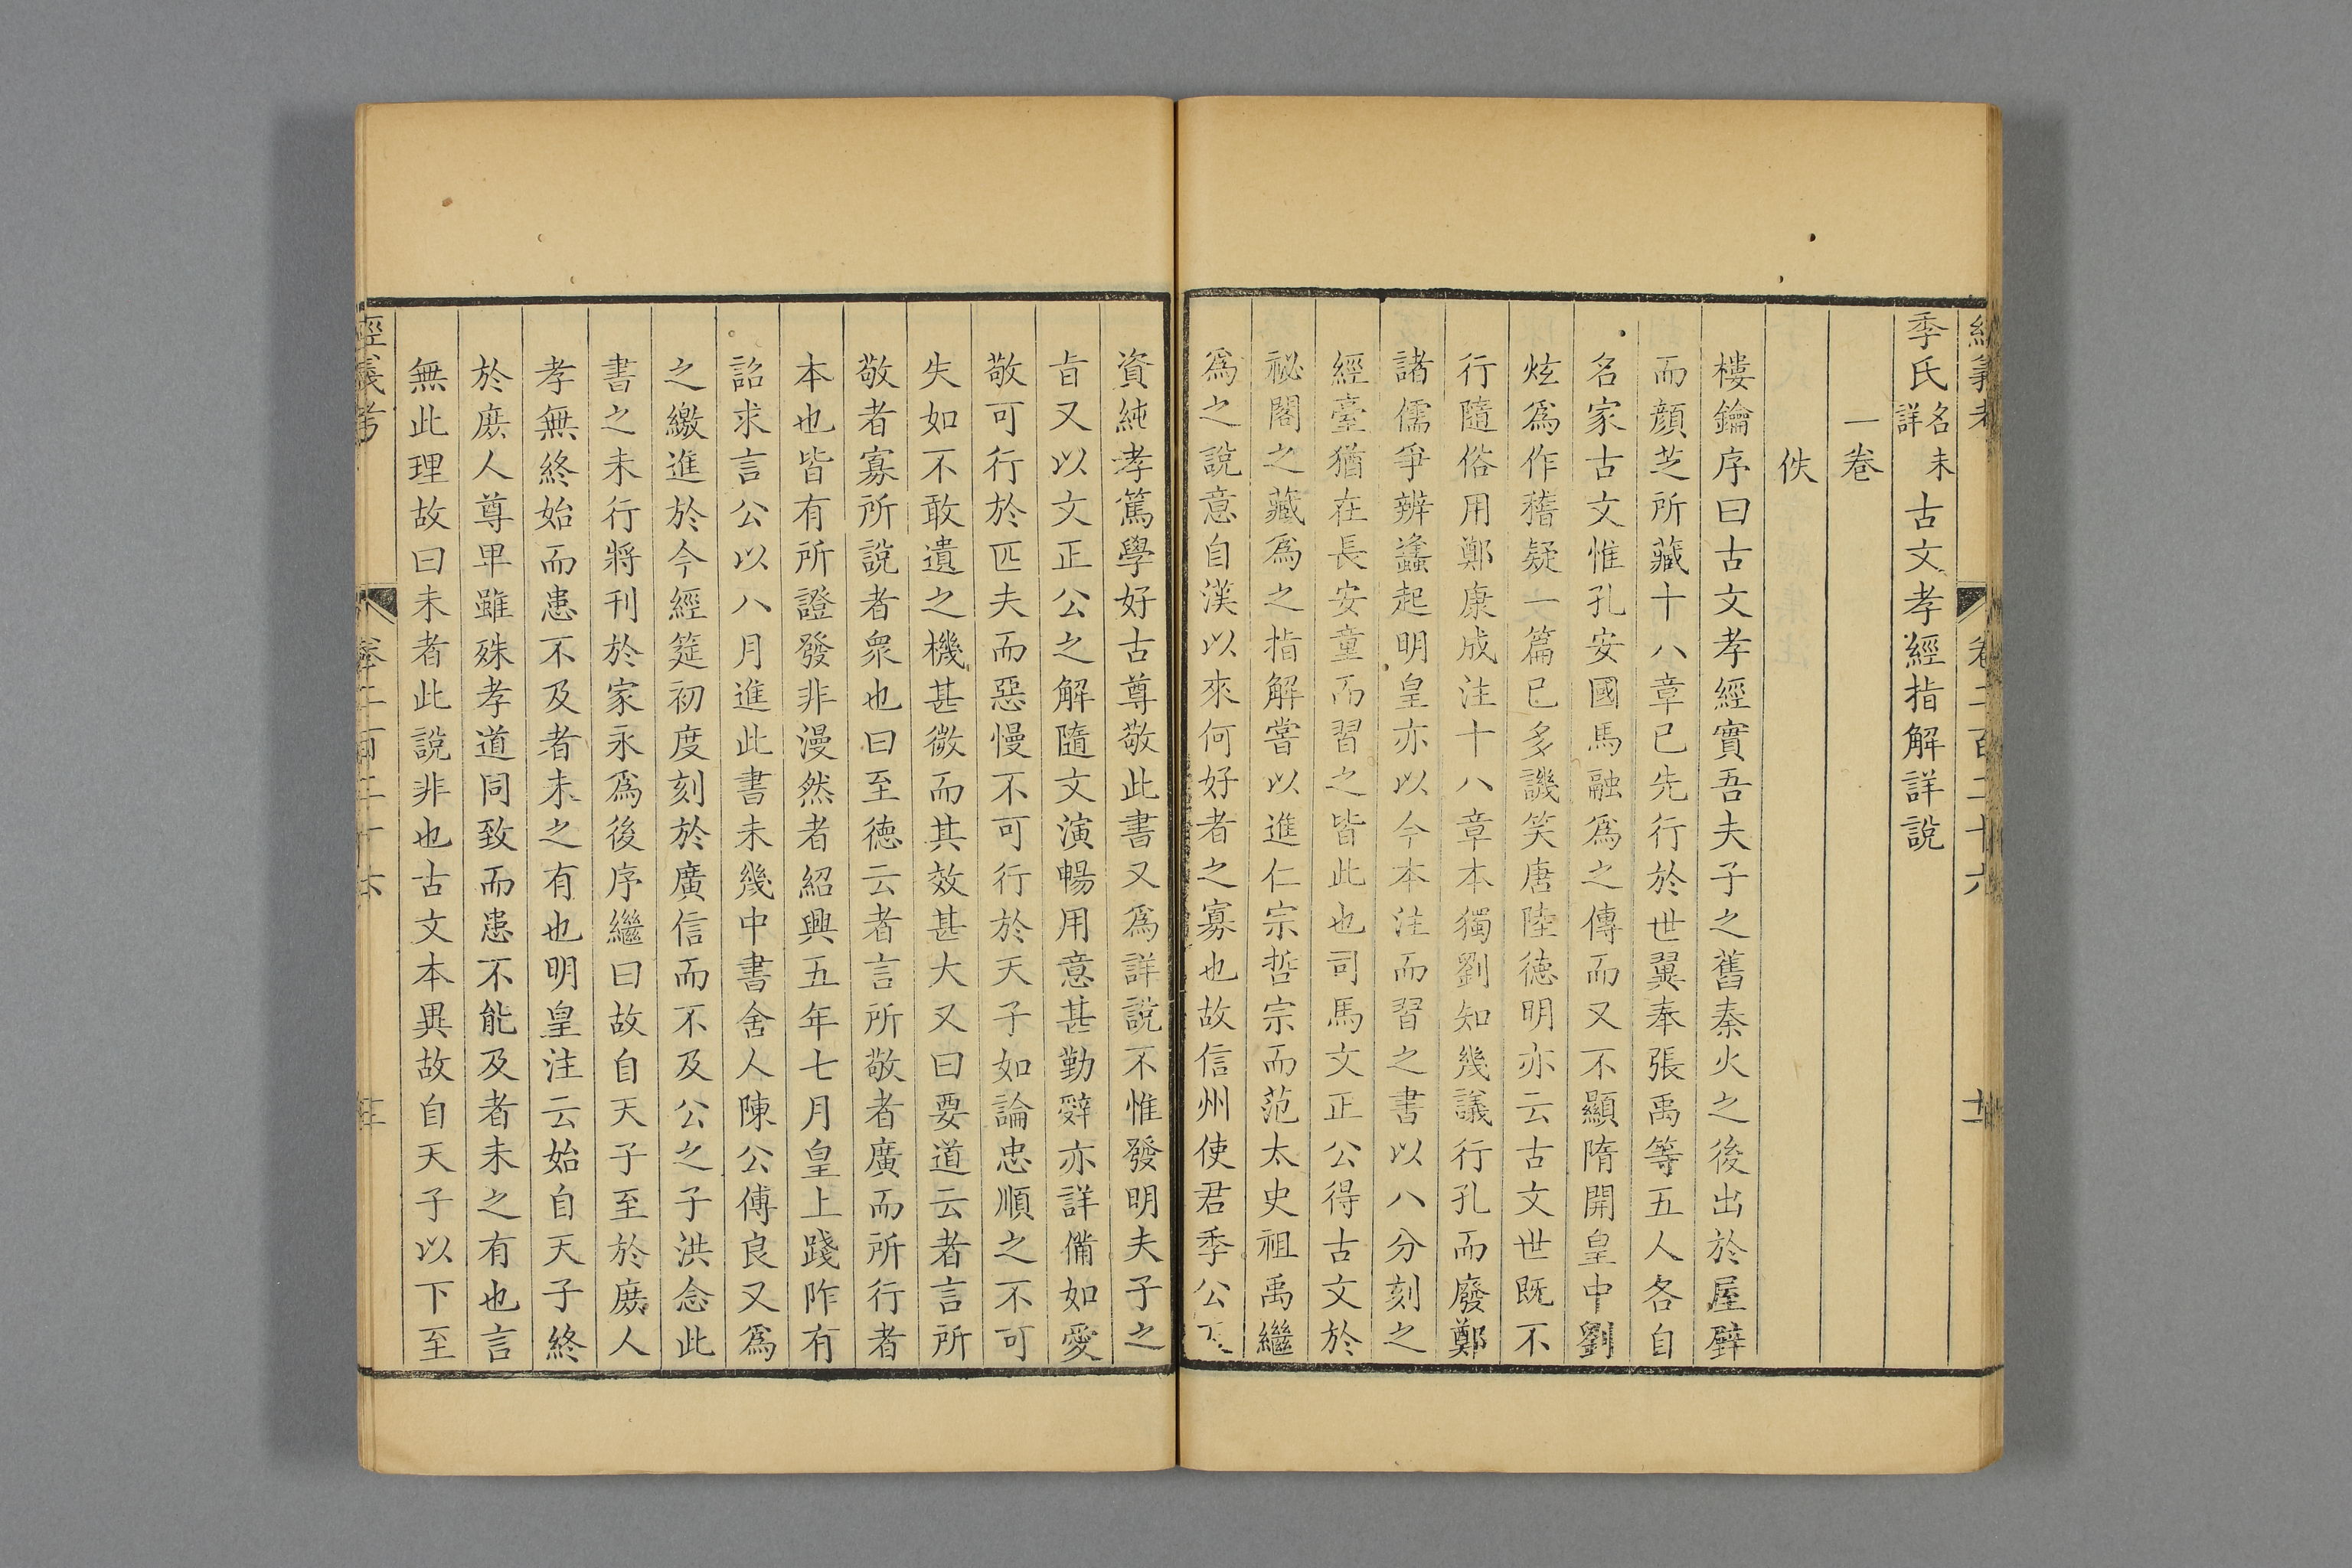 季氏名未詳古文孝經指解詳說
一卷
佚
樓鑰序曰古文孝經實吾夫子之舊秦火之後出於屋壁
而顏芝所藏十八章已先行於世翼奉張禹等五人各自
名家古文惟孔安國馬融爲之傳而又不顯隋開皇中劉
炫爲作稽疑一篇已多譏笑唐陸德明亦云古文世既不
行隨俗用鄭康成注十八章本獨劉知幾議行孔而廢鄭
諸儒爭辨蠭起明皇亦以今本注而習之書以八分刻之
經臺猶在長安童而習之皆此也司馬文正公得古文於
祕閣之藏爲之指解嘗以進仁宗哲宗而范太史祖禹繼
爲之說意自漢以來何好者之寡也故信州使君季公
資純孝篤學好古尊敬此書又爲詳說不惟發明夫子之
旨又以文正公之解隨文演暢用意甚勤辭亦詳備如愛
敬可行於匹夫而惡慢不可行於天子如論忠順之不可
失如不敢遺之機甚微而其效甚大又曰要道云者言所
敬者寡所說者衆也曰至德云者言所敬者廣而所行者
本也皆有所證發非漫然者紹興五年七月皇上踐阼有
詔求言公以八月進此書未幾中書舍人陳公傅良又爲
之繳進於今經筵初度刻於廣信而不及公之子洪念此
書之未行將刊於家永爲後序繼曰故自天子至於庶人
孝無終始而患不及者未之有也明皇注云始自天子終
於庶人尊卑雖殊孝道同致而患不能及者未之有也言
無此理故曰未者此說非也古文本異故自天子以下至
經義考 卷二百二十六